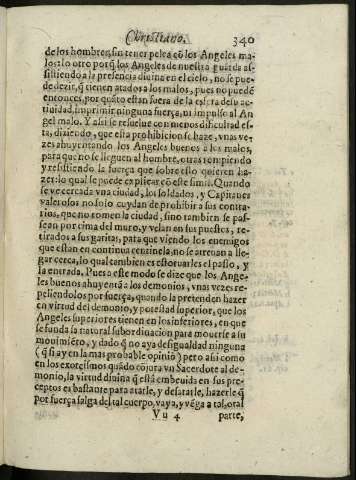 Christiano. 340
de los hombres, sin tener pelea cõ los Angeles ma-
los: lo otro porq̃ los Angeles de nuestra guarda as-
sistiendo a la presencia diuina en el cielo, no se pue-
de dezir, q̃ tienen atados a los malos, pues no puedẽ
entonces, por quãto estan fuera de la esfera de su ac-
tiuidad, imprimir ninguna fuerça, ni impulso al An
gel malo. Y assi se resuelue con menos dificultad es-
ta, diziendo, que esta prohibicion se haze, vnas ve-
zes ahuyentando los Angeles buenos a los malos,
para que no se lleguen al hombre, otras rompiendo
y resistiendo la fuerça que sobre esto quieren ha-
zer: lo qual se puede explicar cõ este simil. Quando
se vee cercada vna ciudad, los soldados, y Capitanes
valerosos no solo cuydan de prohibir a sus contra-
rios, que no tomen la ciudad, sino tambien se pas-
sean por cima del muro, y velan en sus puestos, re-
tirados a sus garitas, para que viendo los enemigos
que estan en continua centinela, no se atreuan a lle-
gar cerca, lo qual tambien es estoruarles el passo, y
la entrada. Pues a este modo se dize que los Ange-
les buenos ahuyentã a los demonios, vnas vezes re-
peliendolos por fuerça, quando la pretenden hazer
en virtud del demonio, y potestad superior, que los
Angeles superiores tienen en los inferiores, en que
se funda su natural subordinacion para mouerse a su
mouimiẽto, y dado q̃ no aya desigualdad ninguna
(q̃ si ay en la mas probable opiniõ) pero assi como
en los exorcismos quãdo cõjura vn Sacerdote al de-
monio, la virtud diuina q̃ està embeuida en sus pre-
ceptos es bastante para atarle, y desatarle, hazerle q̃
por fuerça salga del tal cuerpo, vaya, y vẽga a tal, o tal
Vu 4 parte,